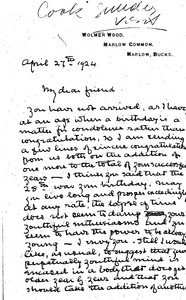 Wolmer Wood,
Marlow Common,
Marlow, Bucks.
April 27th 1924
My dear friend
You have not arrived, as I have
at an age when a birthday is a
matter for condolence rather than
congratulation, so I am sending
a few lines of sincere congratulation
from us both on the addition of
one more to the total of your successful
years — I think you said that the
28th was your birthday. May
you live long and prosper
at any rate, the lapse of time
does not seem to
youthful enthusiasms and you
seem to have the power to be always
young — I envy you. Still I would
like, as usual, to suggest that your
perpetually youthful mind is
encased in a body that does get
older year by year and that you
should take the addition of another